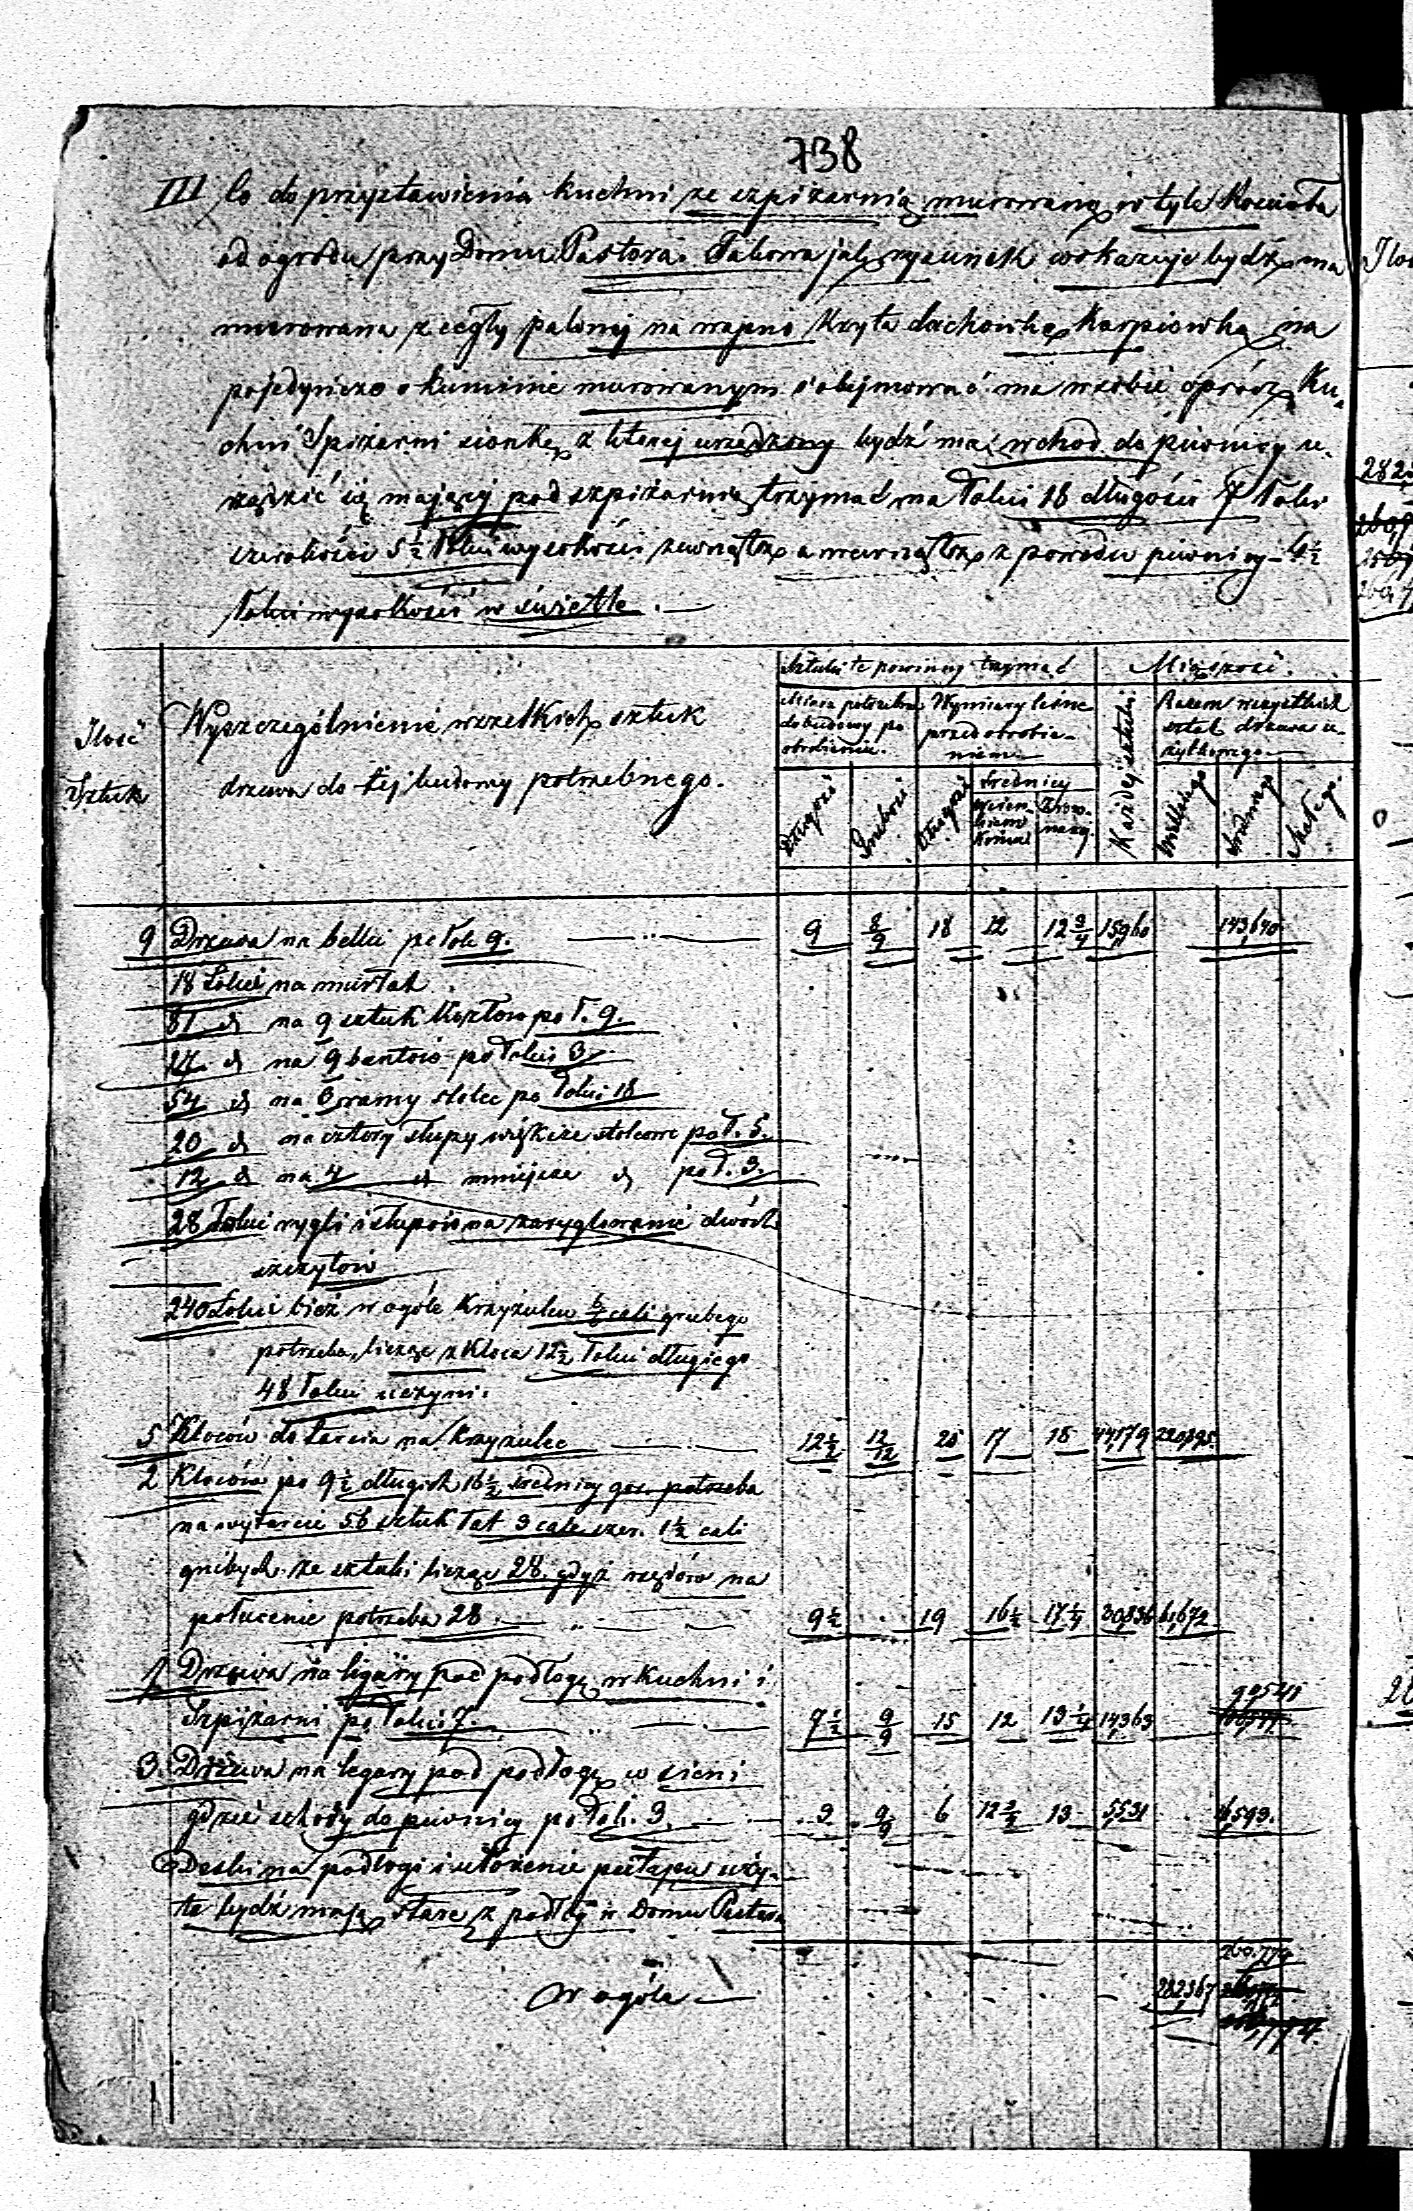 738
III Co do przystawienia kuchni ze szpiżarnią murowaną w tyle Kościoła
od ogrodu przy Domu Pastora. Takowa jak rysunek wskazuje bydź ma
murowana z cegły palonej na wapno kryta dachówką karpiówką na
pojedyńczo o kuminie murowanym i obejmować ma w sobie oprócz Ku-
chni Spiżarni sionkę z której urządzony bydź ma wchod do piwnicy u-
rządzić się mającej pod szpiżarnią trzymać ma Łokci 18 długości 7 Łokci
szerokości 5 1/2 Łokci wysokości zewnątrz a wewnątrz z powodu piwnicy 4 1/2
Łokci wysokości w świetle.
Ilość Sztuk
Wyszczególnienie wszelkich sztuk
drzewa do tej budowy potrzebnego.
Sztuki te powinny trzymać
Miąższość.
Miara potrzebna do budowy po obrobieniu.
Wymiary leśne przed obrobieniem
Każdej sztuki
Razem wszystkich sztuk drzewa użytkowego
Długość
Grubość
Długość
Średnicy
w cieńszem końcu
Zrównany.
Wielkiego
Średniego
Małego
9 Drzewa na belki po Łok. 9. 9 8/9 18 12 12 3/4 15,960 143,640
18 Łokci na murłat
81 d na 9 sztuk Kozłow po Ł. 9.
27 d na 9 bantów po Łokci 3
54 d na 3 ramy stolce po Łokci 18
20 d na cztery słupy większe stolcowe po Ł. 5.
12 d na 4 d mniejsze d po Ł. 3.
28 Łokci rygli i słupów na zaryglowanie dwóch
szczytów
240 Łokci bież w ogóle Krzyżulcu 6/6 cali grubego
potrzeba, licząc z Kloca 12 1/2 Łokci długiego
48 Łokci uczyni.
5 Kloców do tarcia na krzyżulec 12 1/2 12/12 25 17 18 44,179 220,895.
2 Kloców po 9 1/2 długich 16 1/2 średnicy potrzeba
na wytarcie 56 sztuk Łat 3 cale szer. 1 1/2 cali
grubych ze sztuki licząc 28. gdyż rzędów na
połacenie potrzeba 28. 9 1/2 19 16 1/2 17 1/4 30,836 61,672
Drzewa na ligary pod podłogę w kuchni i
Szpiżarni po Łokci 7. 7 1/2 9/9 15 12 13 1/4 14,363
3. Drzewa na legary pod podłogę w sieni
gdzie schody do piwnicy po Łok. 3. 3 9/9 6 12 3/4 13 5,531 16,593.
Deski na podłogi i ułożenie pułapu uży-
te bydź mają stare z podłóg w Domu Pastora
W ogóle 282,567
260,774